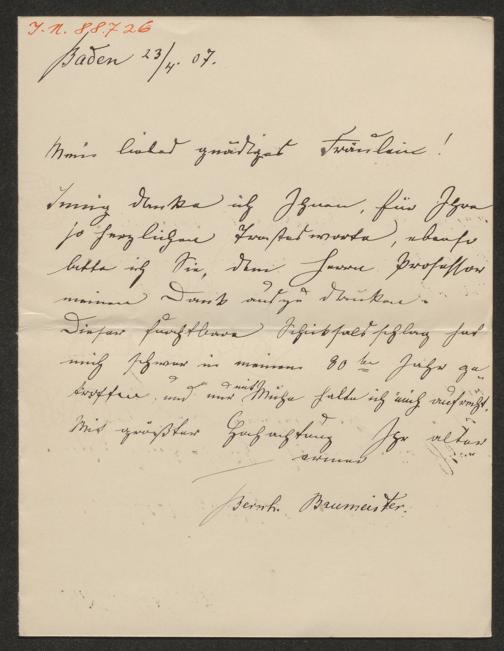 J.N. 88.726
Baden 23/4. 07.
Mein liebes gnädiges Fräulein!
Innig danke ich Ihnen, für Ihre
so herzlichen Trostesworte, ebenso
bitte ich Sie, dem Herrn Professor
meinen Dank auszudrücken.
Dieser furchtbare Schicksalsschlag hat
mich schwer in meinem 80ten Jahr ge
troffen, und nur mit Mühe halte ich mich aufrecht.
Mit größter Hochachtung Ihr alter
armer
Bernh. Baumeister.